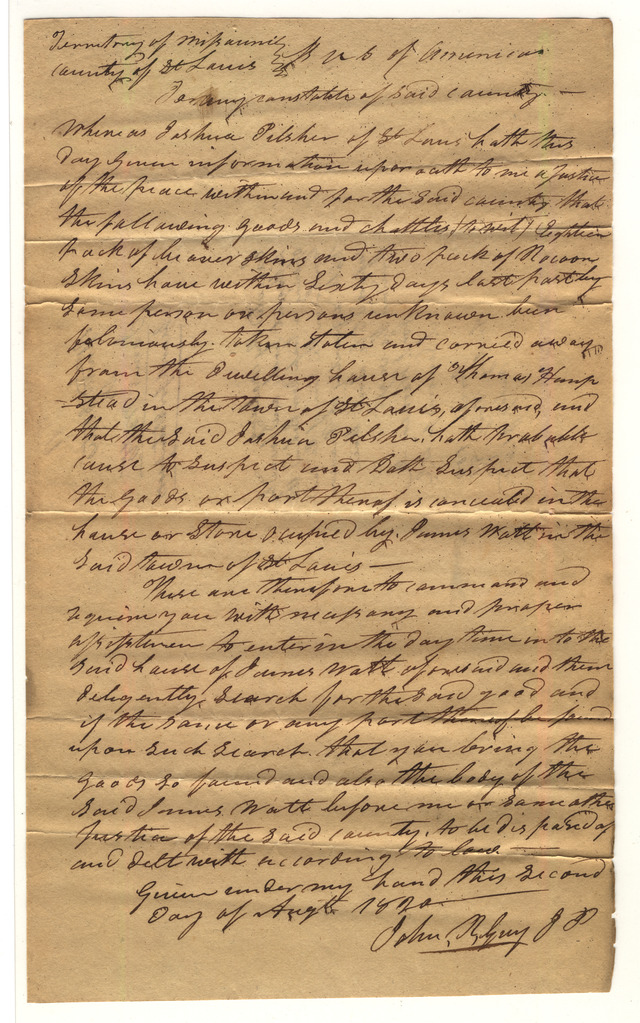 Territory of Missouri
County of St Louis } U S of America
To any constable of said county —
Whereas Joshua Pilsher of St Louis hath this
day Given information upon oath to me a Justice
of the peace within and for the said county that
the following goods and chattles (to wit) Eighteen
pack of beaver skins and two pack of Racoon
Skins have within Sixty days last past by
some person or persons unknown been
feloniously taken stolen and carried away
from the Dwelling house of Thomas Hemp
stead in the town of St Louis, aforesaid, and
that the said Joshua Pilsher, hath probable
cause to suspect and Doth Suspect that
the Goods or part thereof is concealed in the
house or Store ocupied by James Watt in the
said town of St Louis —
These are therefore to command and
require you with necessary and proper
assistence to enter in the day time in to the
said house of James Watt aforesaid and there
diligently search for the said good and
if the same or any part thereof be found
upon such search that you bring the
goods so found and also the body of the
said James Watt before me or some other
Justice of the said county, to be disposed of
and delt with according to law —
Given under my hand this second
Day of Augt 1820
John R Guy J P